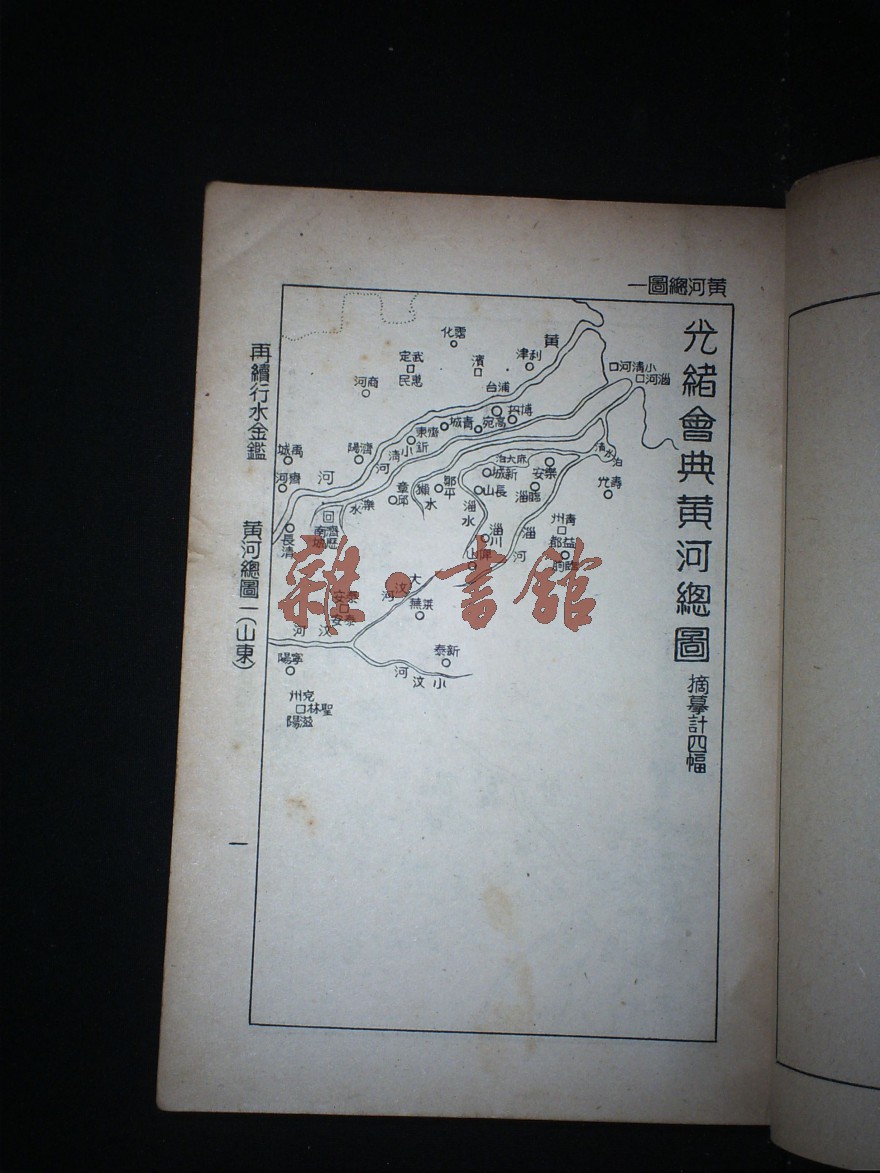 黃河總圖一
光緒會典黃河總圖
摘摹計四幅
小清河口
淄河口
黃
利津
霑化
濱
武定
惠民
商河
蒲台
博
高宛
青城
齊東
新
小清河
濟陽
禹城
齊河
河
清水泊
壽光
樂安
麻大泊
新城
長山
鄒平
獺水
章邱
濼水
臨淄
青州
益都
臨朐
淄河
淄川
淄水
博山
歷城
濟南
長清
大汶河
萊蕪
泰安
泰安
汶河
新泰
小汶河
寧陽
兗州
聖林
滋陽
再續行水金鑑
黃河總圖一(山東)
一
雜·書館